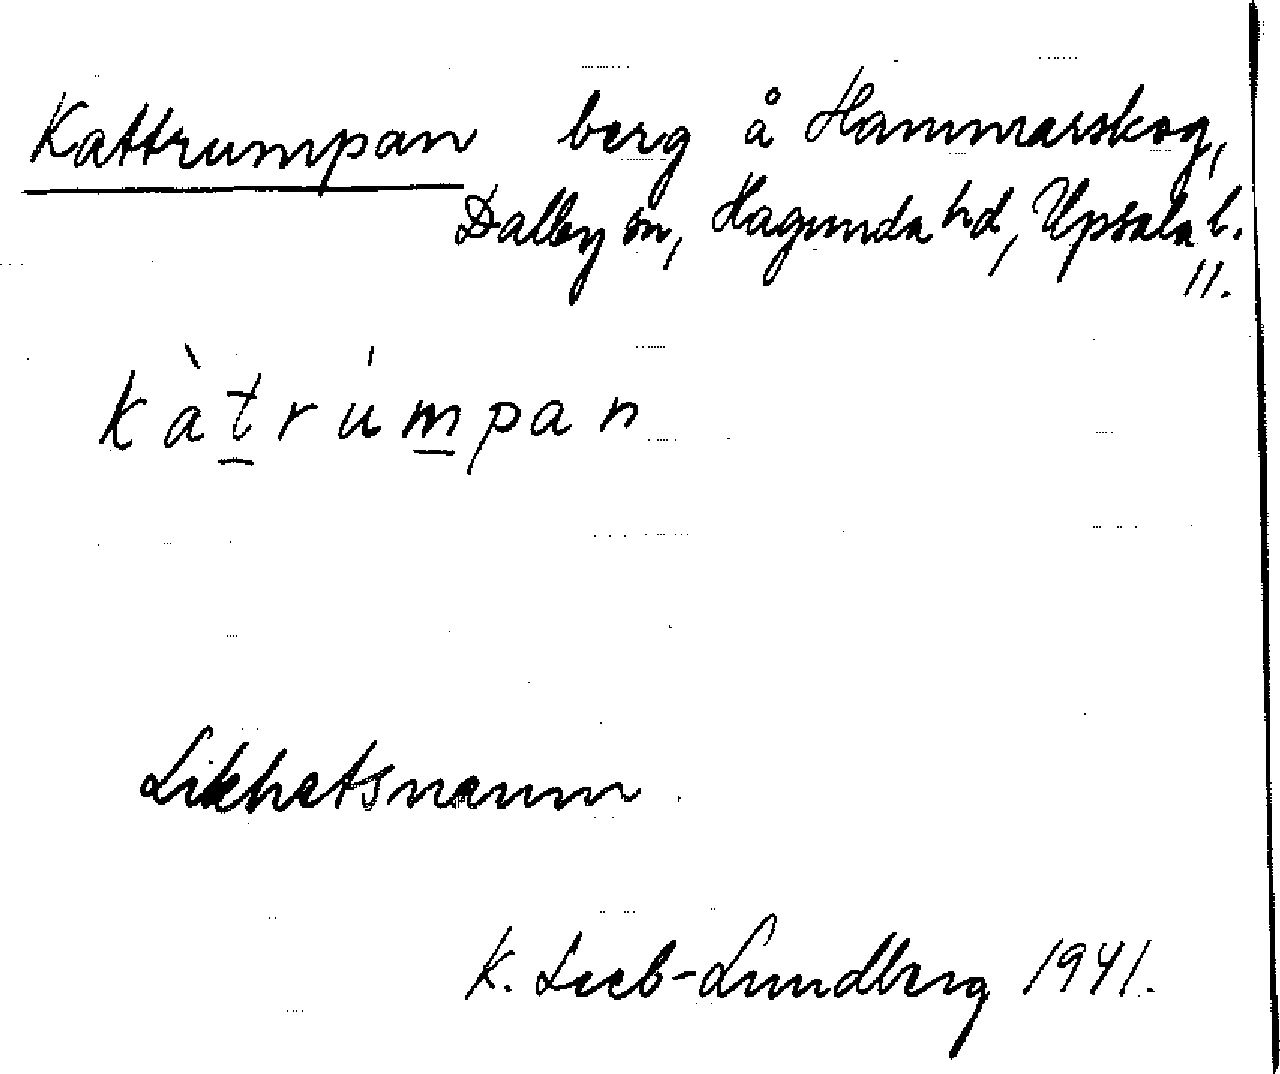 Kattrumpan berg å Hammarskog,
Dalby sn, Hagunda hd, Upsala l.
11.
kàtrúmpan
Likhetsnamn.
K. Leeb-Lundberg 1941.